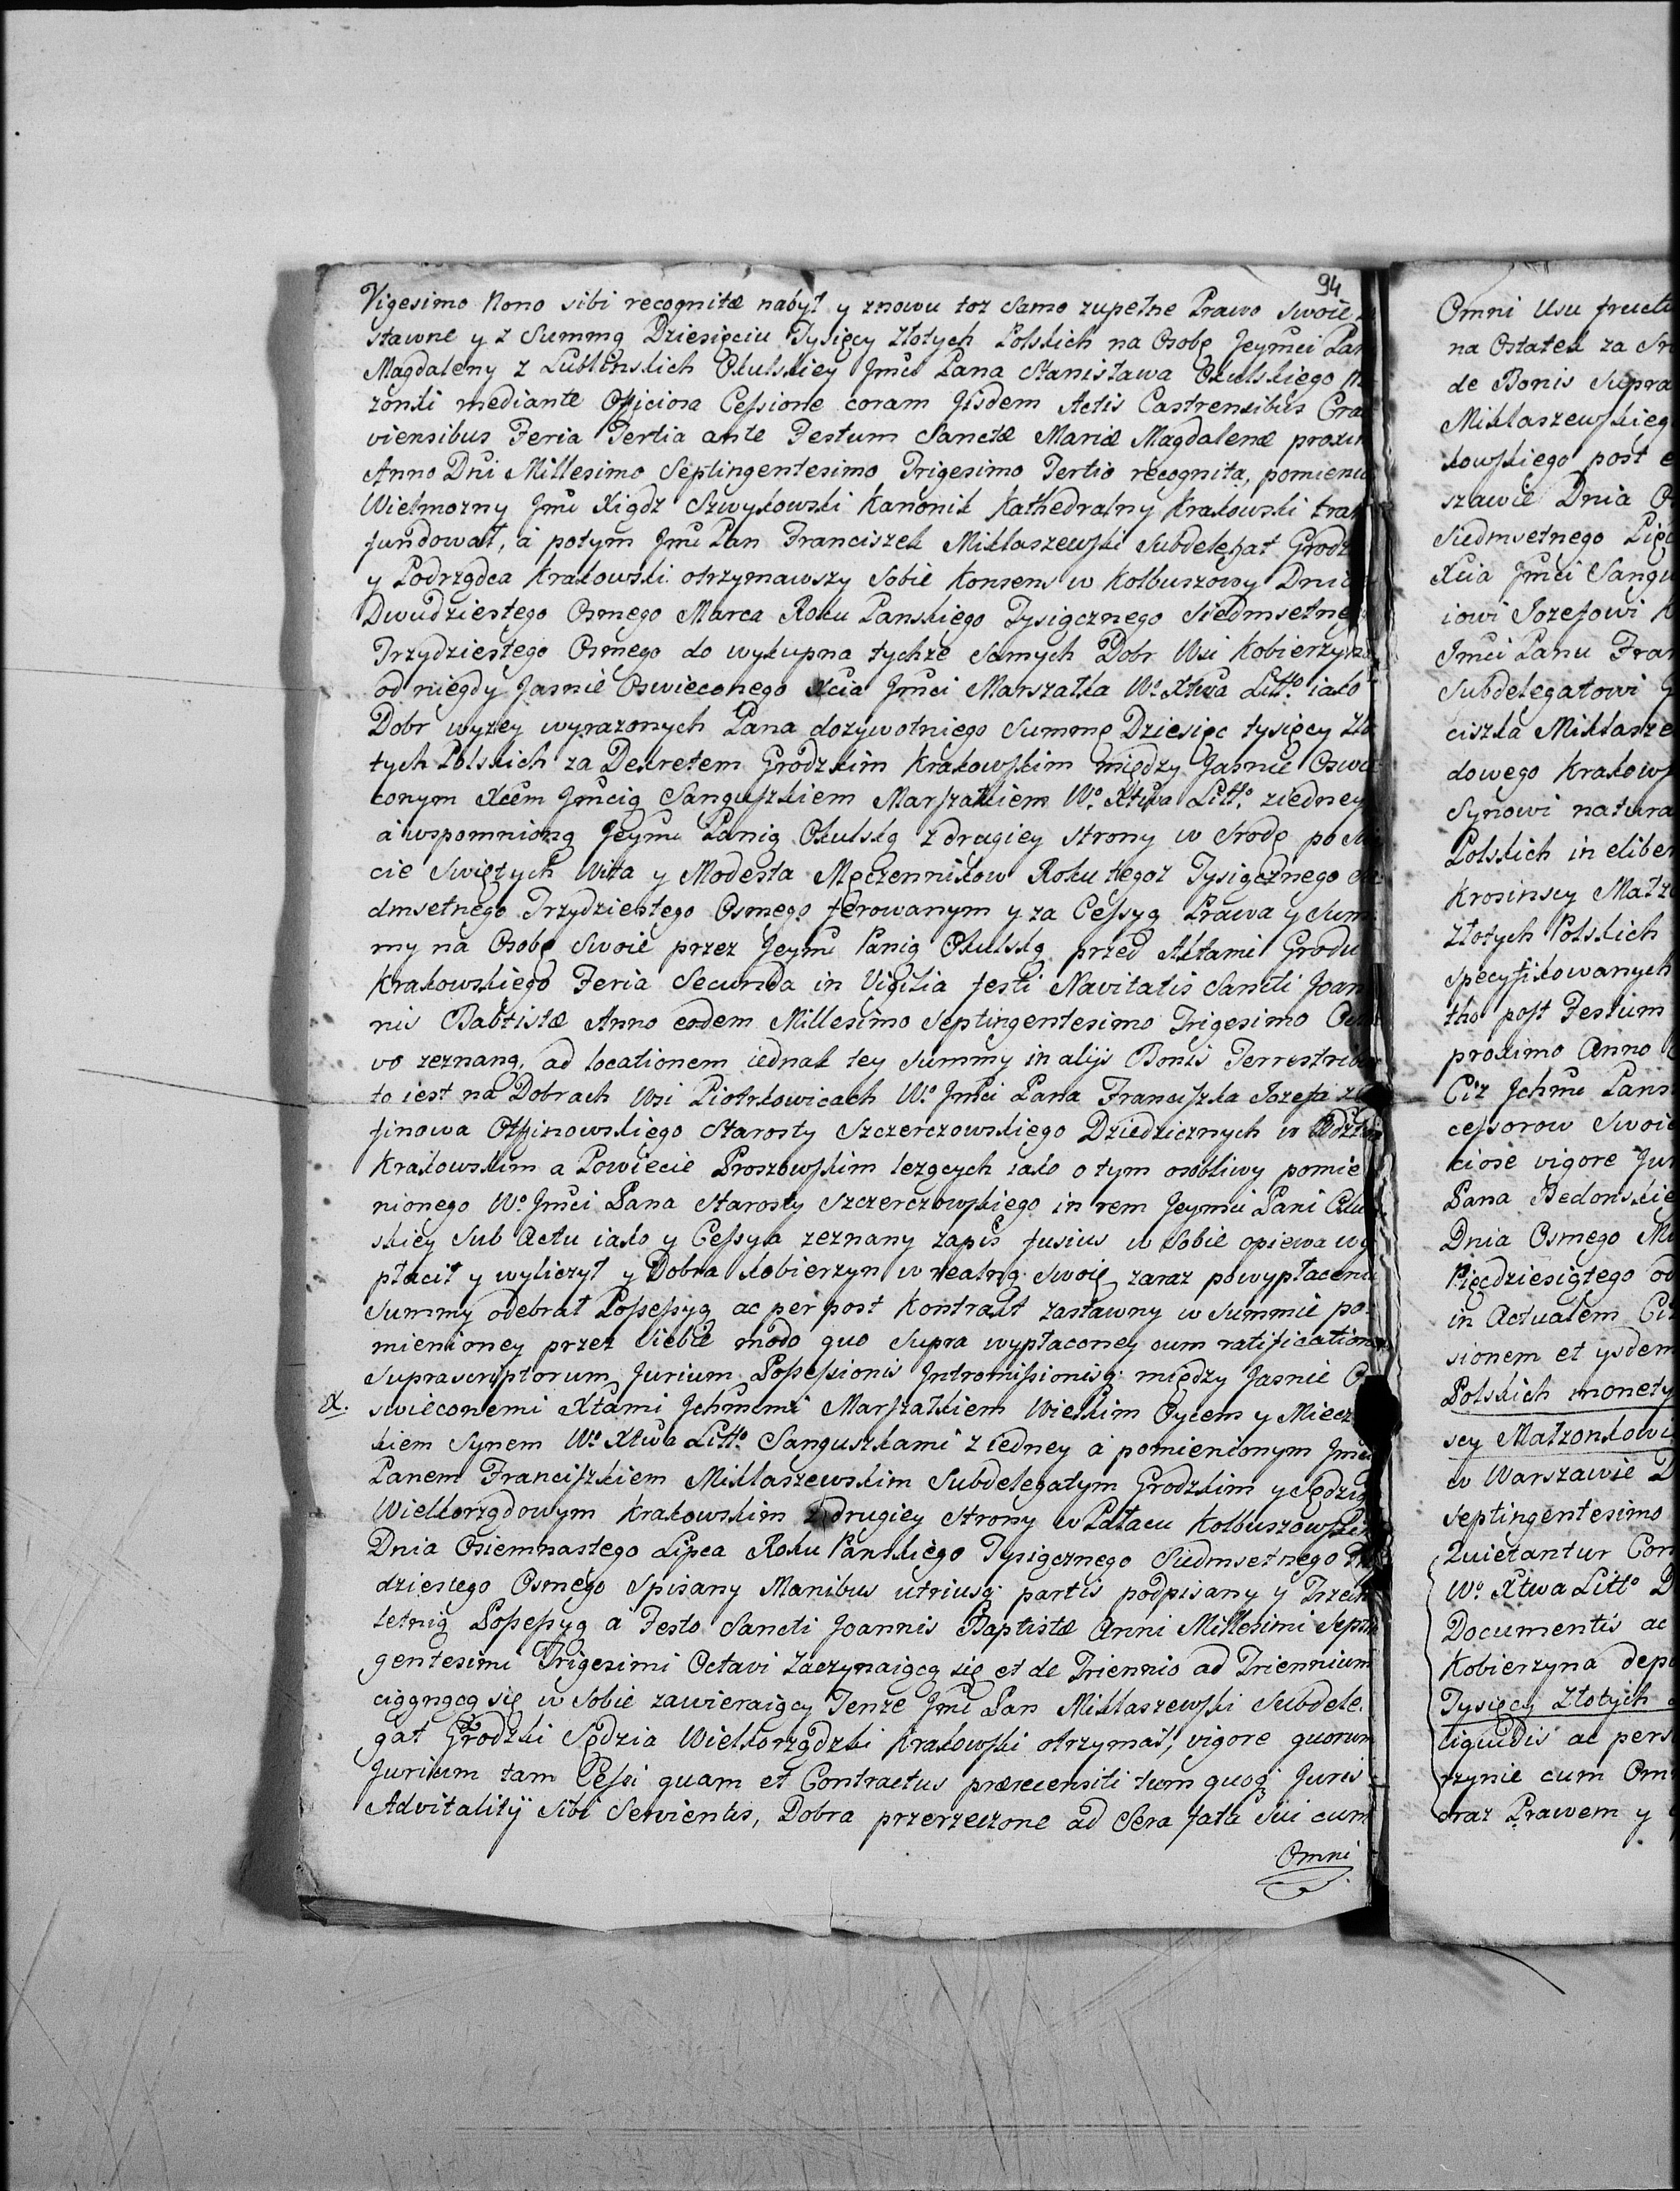 94
Vigesimo Nono sibi recognitæ nabył y znowu toż samo zupełne Prawo swoie
stawne y z Summą Dziesięciu Tysięcy Złotych Polskich na Osobę Jeymci Pan
Magdaleny z Lublinskich Okulskiey Jmci Pana Stanisława Okulskiego
żonki mediante Officiosa Cessione coram Jisdem Actis Castrensibus Cra
viensibus Feria Tertia ante Festum Sanctæ Mariæ Magdalenæ proxim
Anno Dni Millesimo Septingentesimo Trigesimo Tertio recognita, pomieniu
Wielmozny Jmć Xiądz Szwykowski Kanonik Kathedralny Krakowski tran
fundował, á potym Jmć Pan Franciszek Miklaszewski Subdelegat Grodz
y Podrządca Krakowski otrzymawszy sobie Konsens w Kolbuszowy Dnia
Dwudziestego Osmego Marca Roku Panskiego Tysiącznego Siedmsetneg
Trzydziestego Osmego do wykupna tychże samych Dobr Wsi Kobierzyna
od niegdy Jasnie Oswieconego Xcia Jmci Marszałka Wo Xtwa Litto iako
Dobr wyzey wyrazonych Pana dozywotniego Summę Dziesięc tysięcy Zło
tych Polskich za Dekretem Grodzkim Krakowskim między Jasnie Oswie
conym Xcem Jmcią Sanguszkiem Marszałkiem Wo Xtwa Litto ziedney
á wspomnioną Jeymć Panią Okulską z drugiey strony w srodę po
cie swiętych Wita y Modesta Męczennikow Roku tegoz Tysiącznego
dmsetnego Trzydziestego Osmego ferowanym y za Cessyą Prawa y Sum
my na Osobę swoie przez Jeymć Panią Okulską przed Aktami Grodu
Krakowskiego Feria Secunda in Vigilia festi Navitatis Sancti Joan
nis Babtistæ Anno eodem Millesimo Septingentesimo Trigesimo Octa
vo zeznaną, ad locationem iednak tey summy in alijs Bonis Terrestribus
to iest na Dobrach Wsi Piotrkowicach Wo Jmci Pana Franciszka Jozefa z
finowa Otfinowskiego Starosty Szczerczowskiego Dziedzicznych w
Krakowskim a Powiecie Proszowskim lezących iako o tym osobliwy pomie
nionego Wo Jmci Pana Starosty Szczerczowskiego in rem Jeymci Pani Okul
skiey sub Actu iako y Cessya zeznany zapis fusius w sobie opiewa wy
płacił y wyliczył y Dobra Kobierzyn w realną swoię zaraz powypłaceniu
summy odebrał Possessyą ac per post Kontrakt zastawny w summie po
mienioney przez siebie modo quo supra wypłaconey cum ratificatione
suprascriptorum Jurium Possessionis Intromissionisq: między Jasnie O
swieconemi Xtami Jchmcmi Marszałkiem Wielkim Oycem y Miecz
kiem Synem Wo Xtwa Litto Sanguszkami z iedney á pomienionym Jmci
Panem Franciszkiem Miklaszewskim Subdelegatym Grodzkim y Sędzią
Wielkorządowym Krakowskim z drugiey strony w Pałacu Kolbuszowskim
Dnia Osiemnastego Lipca Roku Panskiego Tysiącznego Siedmsetnego
dziestego Osmego spisany Manibus utriusq: partis podpisany y Trzech
letnią Possessyą a Festo Sancti Joannis Baptistæ Anni Millesimi Septin
gentesimi Trigesimi Octavi zaczynaiącą się et de Triennio ad Triennium
ciągnącą się w sobie zawieraiący Tenze Jmć Pan Miklaszewski Subdele
gat Grodzki Sędzia Wielkorządzki Krakowski otrzymał, vigore quorum
Jurium tam Cessi quam et Contractus præcensiti tum quoq: Juris
Advitalitÿ sibi servientis, Dobra przerzeczone ad Sera fata sui cum
Omni
Omni Usu fructu
na Ostatek za
de Bonis supra
Miklaszewskieg
kowskiego post
szawie Dnia
Siedmsetnego Pięć
Xcia Jmci Sangu
iowi Jozefowi
Jmci Panu Fran
Subdelegatowi
ciszka Miklasze
dowego Krakows
Synowi natura
Polskich in eliber
Krosinscy Małż
Złotych Polskich
specyfikowanych
tho post Festum
proximo Anno
Ciz Jchmć Pans
cessorow swoie
ciose vigore Jur
Pana Bedonskie
Dnia Osmego
Pięcdziesiątego
in Actualem
sionem et ysdem
Polskich monety
scy Małzonkowi
w Warszawie
Septingentesimo
Quietantur Con
Wo Xtwa Litto
Documentis ac
Kobierzyna depo
Tysięcy Złotych
liquidis ac pers
rzynie cum Om
oraz Prawem y